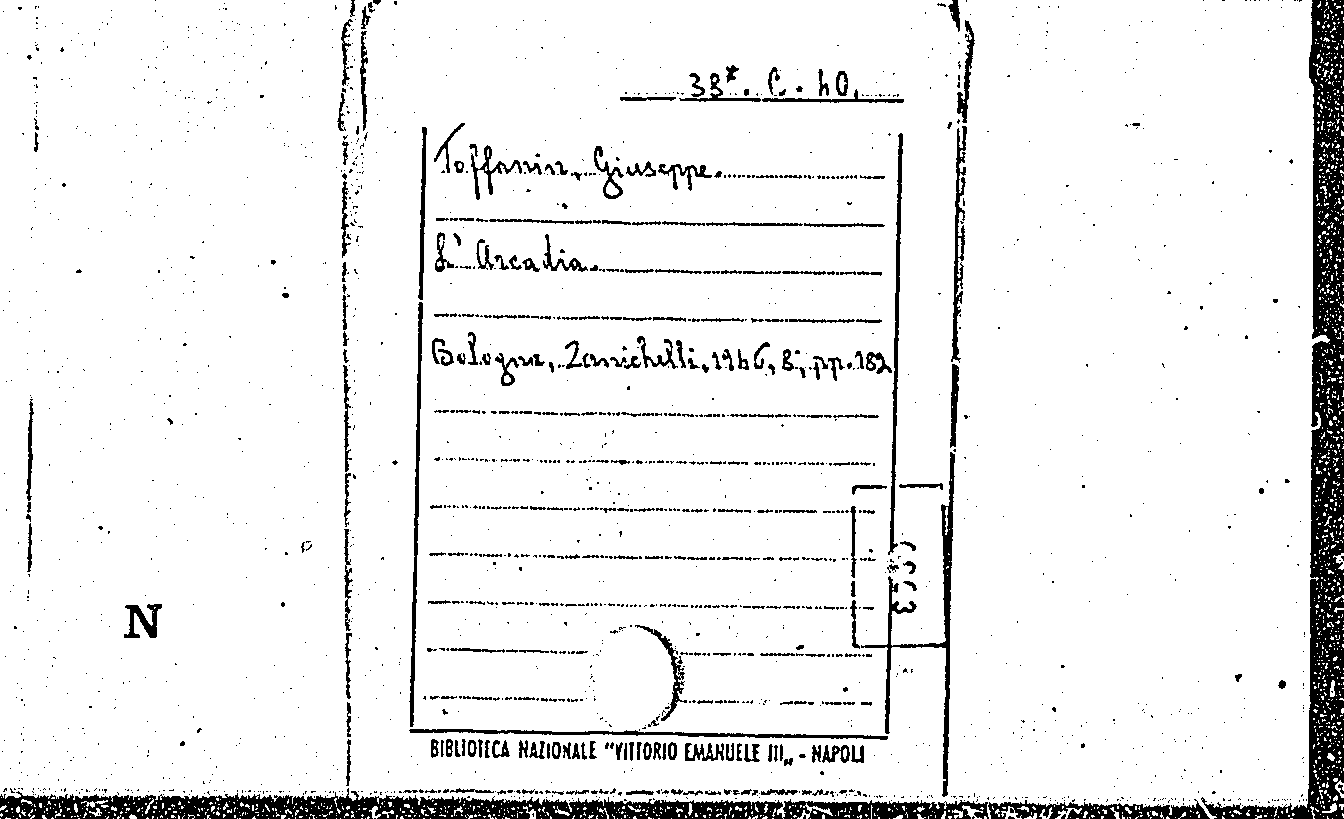 33*. C. 40.
Toffanin, Giuseppe.
L' Arcadia.
Bologna, Zanichelli, 1946, 8; pp. 182
N
BIBLIOTECA NAZIONALE "VITTORIO EMANUELE III„ - NAPOLI